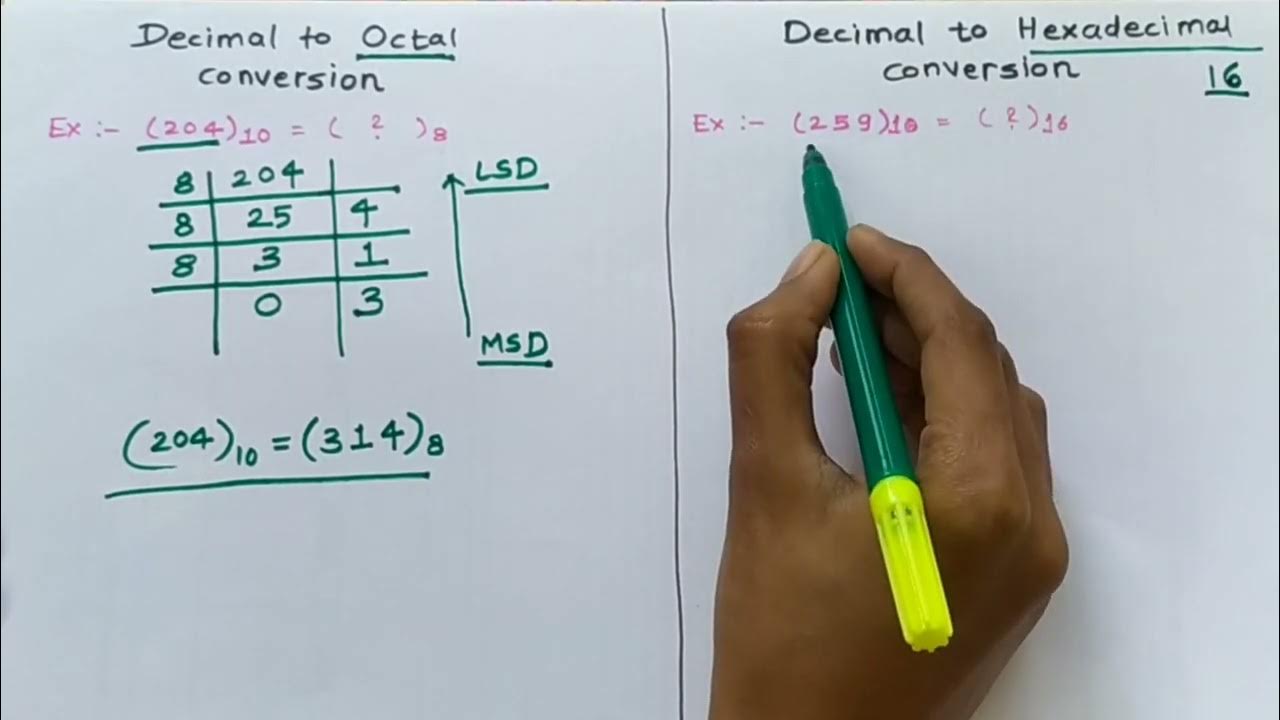 Decimal to Octal
conversion
Ex :- (204)10 = ( ? )8
8 204
8 25 4
8 3 1
0 3
LSD
MSD
(204)10 = (314)8
Decimal to Hexadecimal
conversion
16
Ex :- (259)10 = ( ? )16